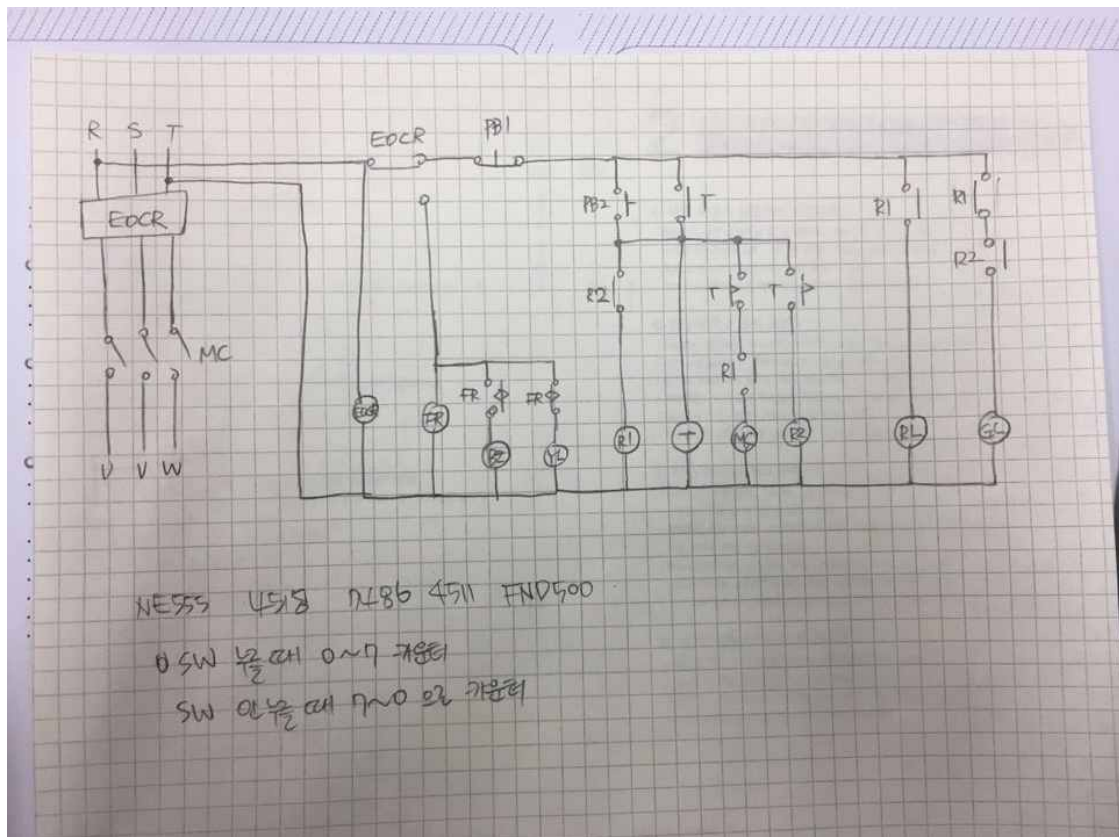 R S T
EOCR PB1
EOCR
PB2 T R1 R1
R2
R2 T T
MC
R1
FR FR
EOCR FR BZ YL R1 T MC R2 RL GL
U V W
NE555 4518 7486 4511 FND500
SW 누를때 0~7 카운터
SW 안누를때 7~0 으로 카운터